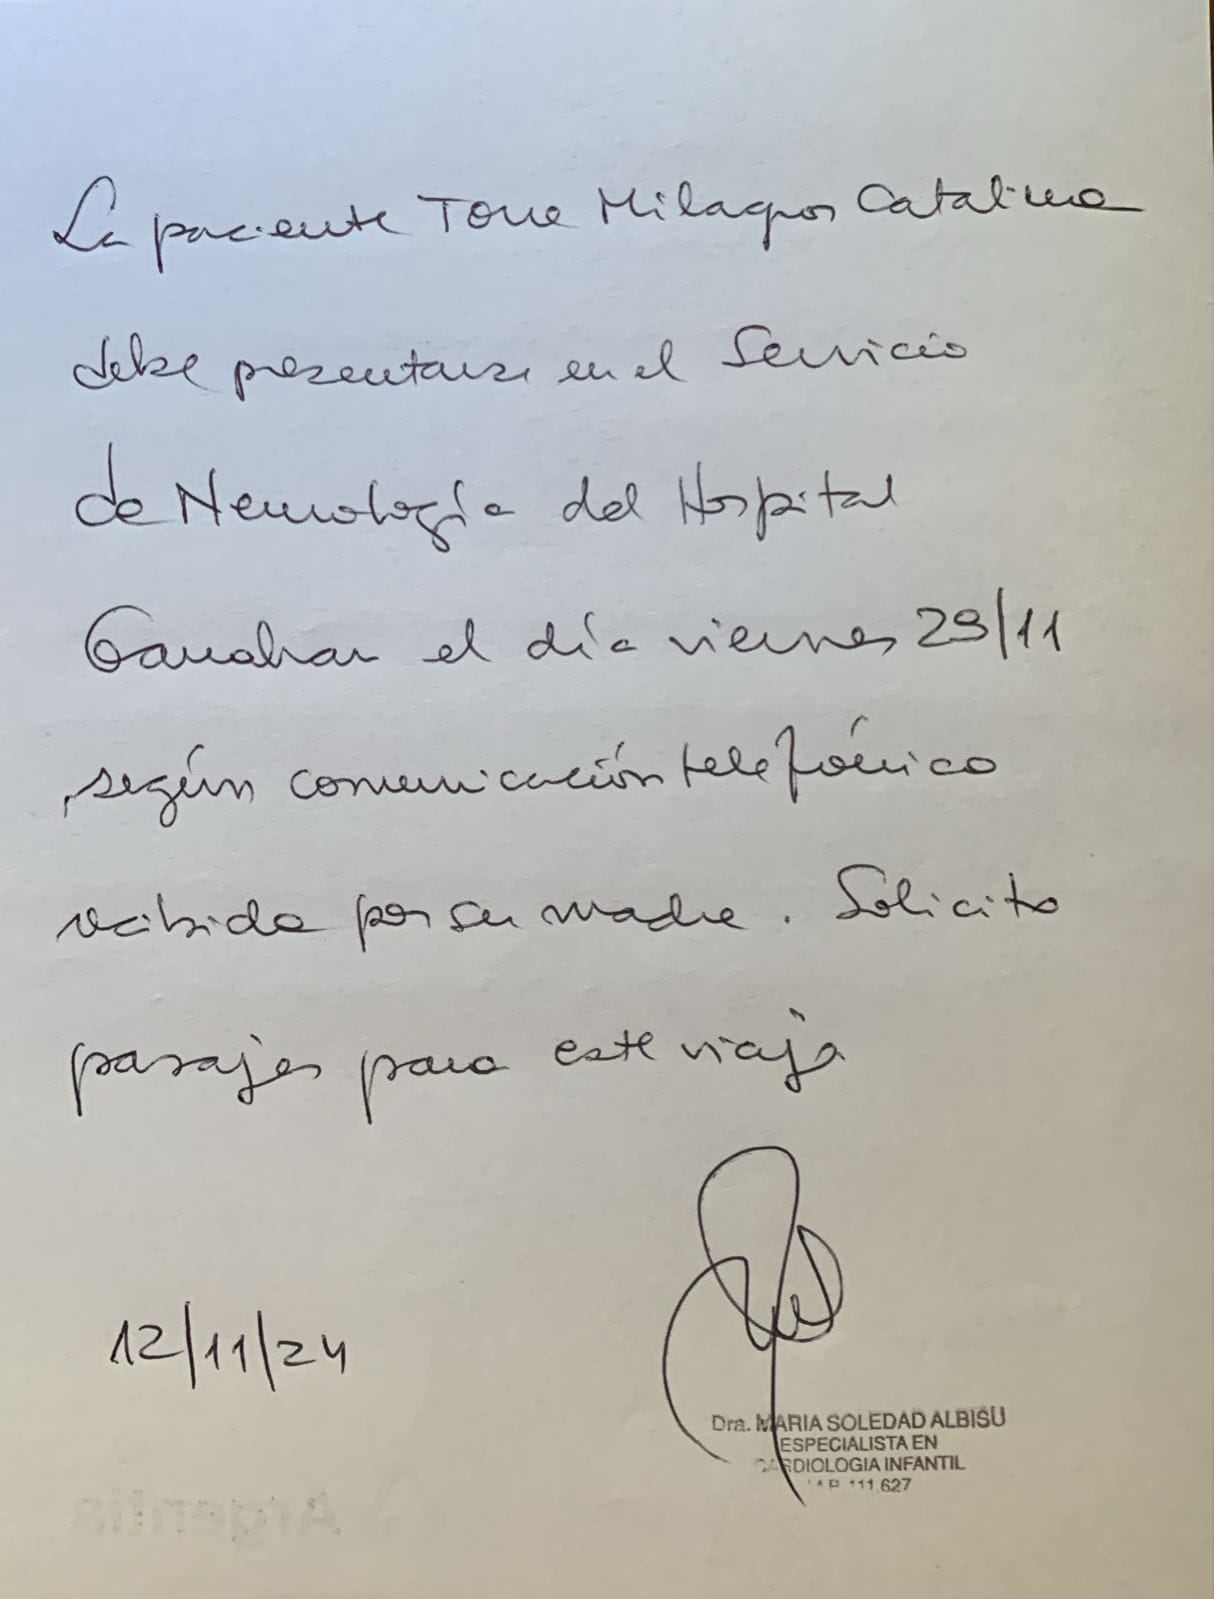 La paciente Torre Milagros Catalina
debe presentarse en el Servicio
de Neurología del Hospital
Garrahan el día viernes 29/11
, según comunicación telefónica
recibida por su madre. Solicito
pasajes para este viaje
12/11/24
Dra. MARIA SOLEDAD ALBISU
ESPECIALISTA EN
CARDIOLOGIA INFANTIL
111.627
Argentin